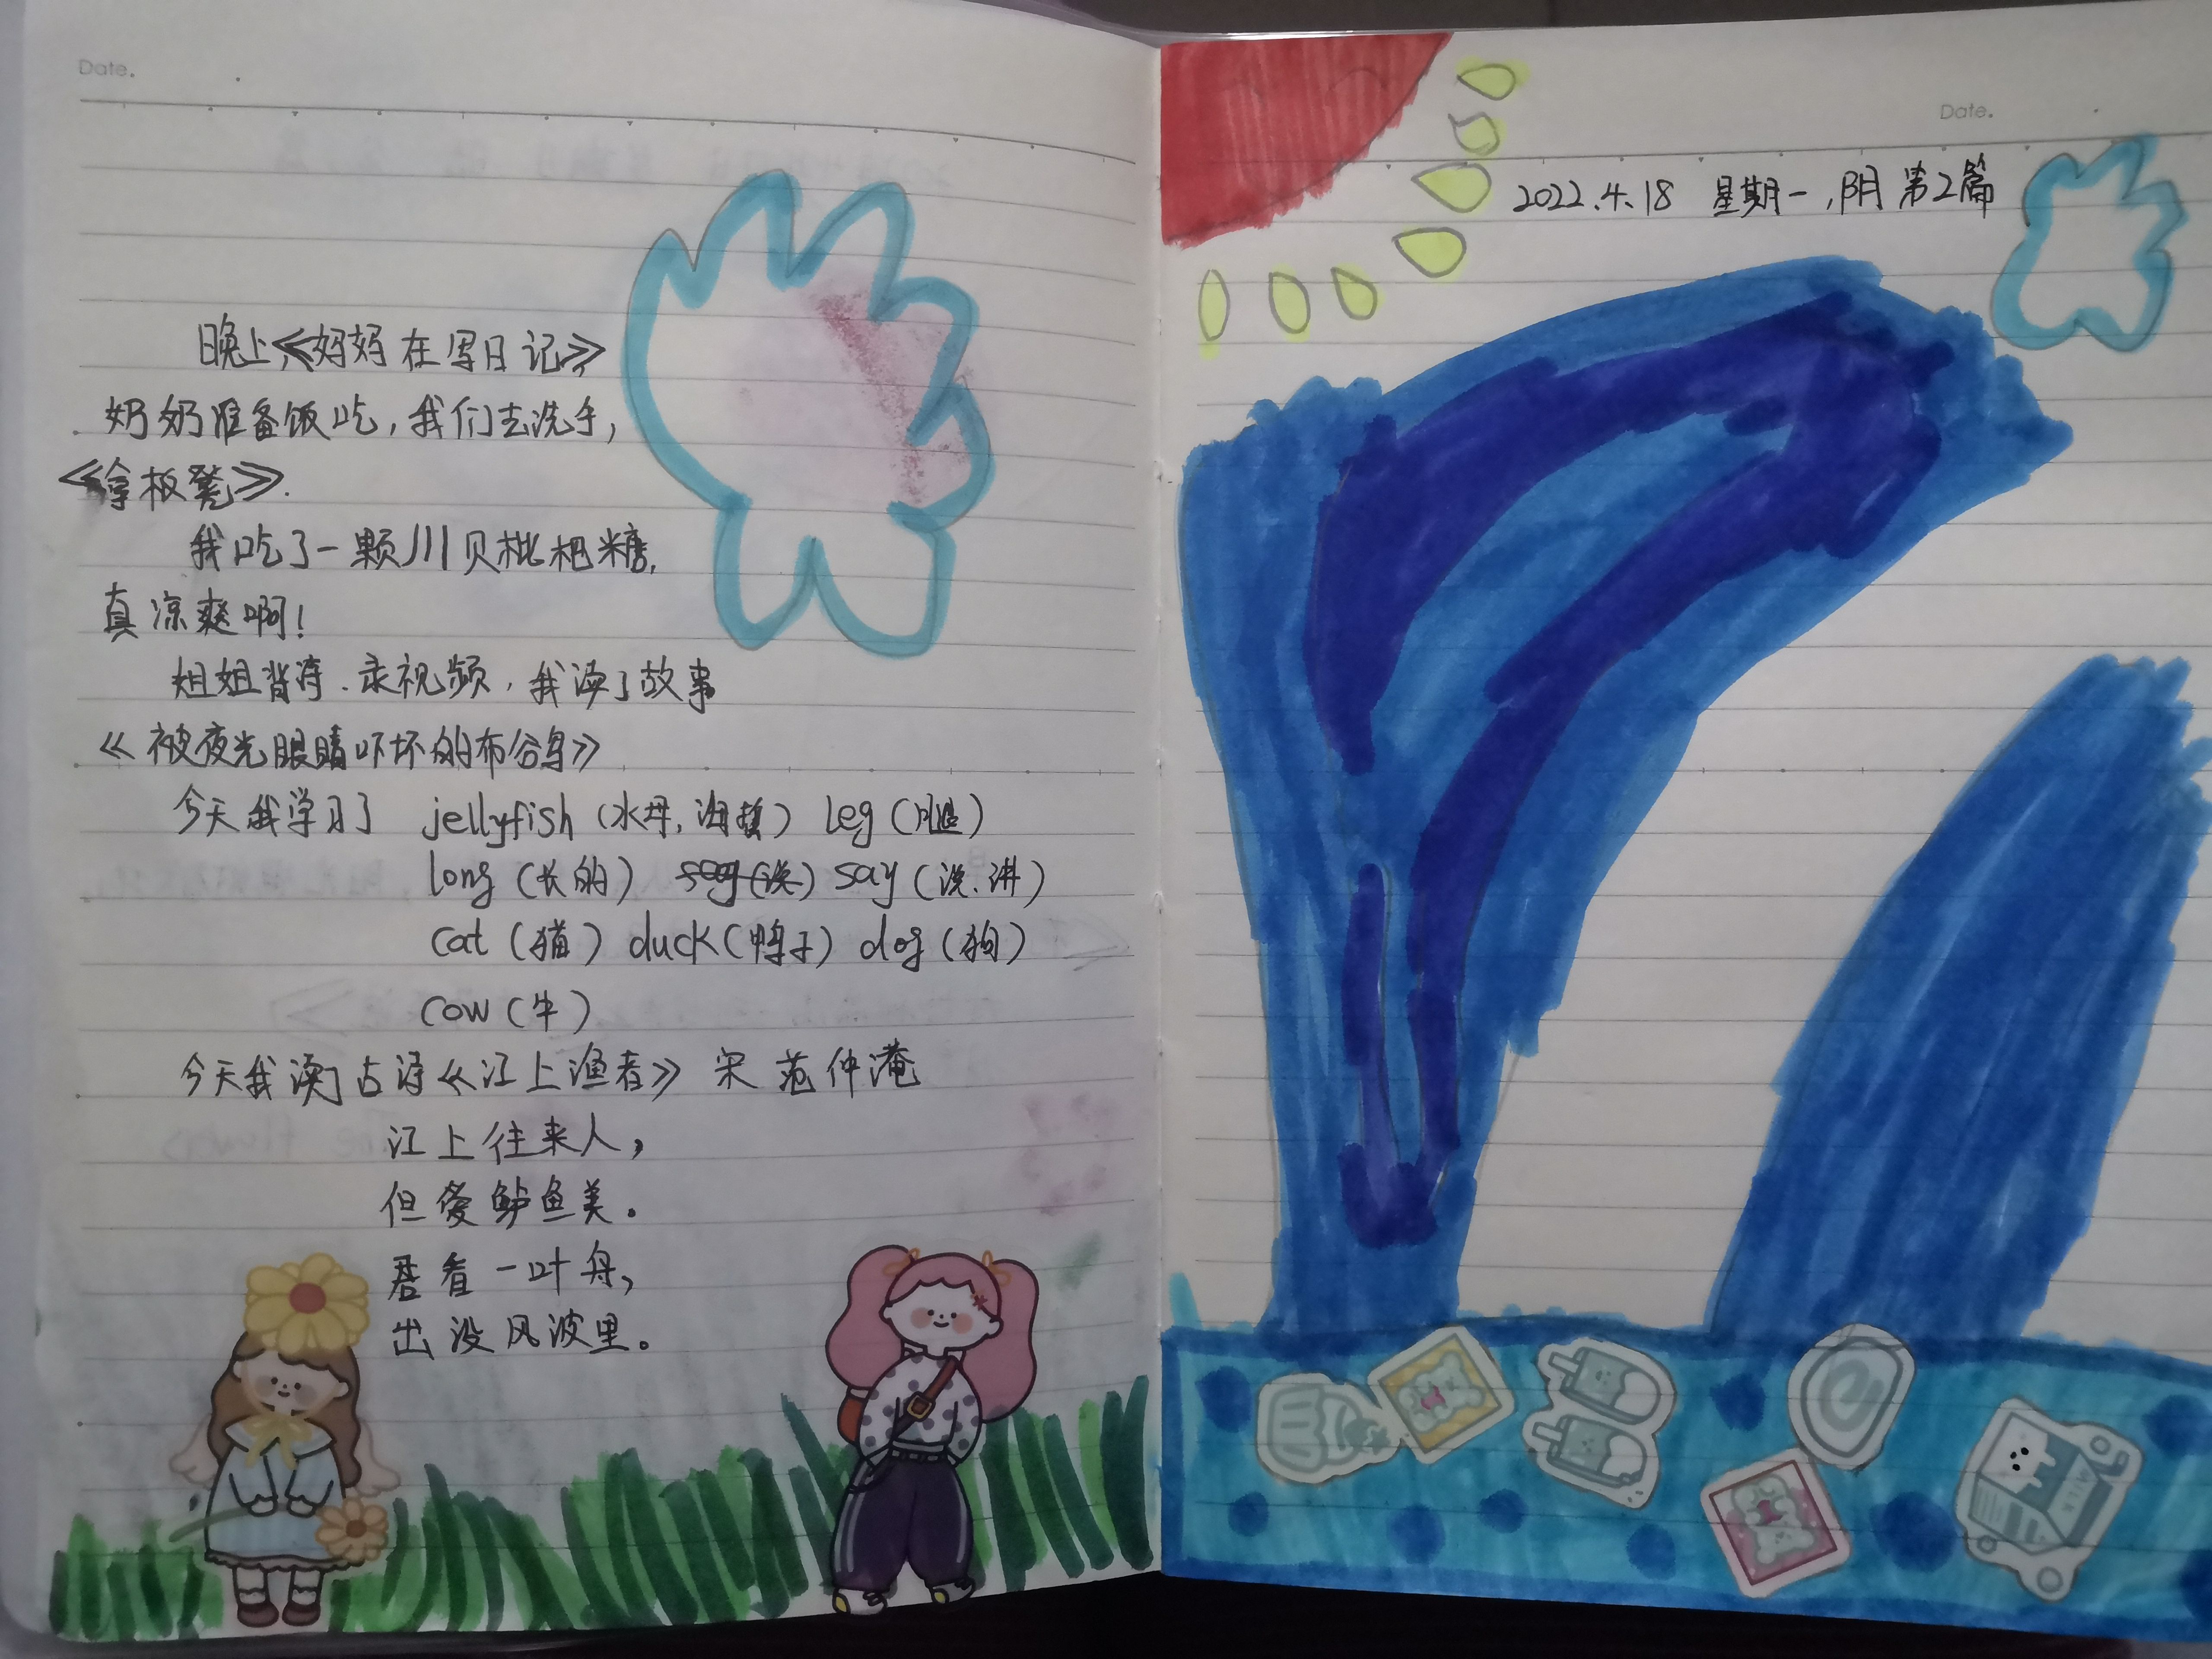 Date.
晚上《妈妈在写日记》
奶奶准备饭吃,我们去洗手,
《拿板凳》.
我吃了一颗川贝枇杷糖,
真凉爽啊!
姐姐背诗.录视频,我读了故事
《被夜光眼睛吓坏的布谷鸟》
今天我学习了 jellyfish(水母,海蜇) leg(腿)
long(长的) say(说.讲)
cat(猫) duck(鸭子) dog(狗)
cow(牛)
今天我读了古诗《江上渔者》 宋 范仲淹
江上往来人,
但爱鲈鱼美。
君看一叶舟,
出没风波里。
Date.
2022.4.18 星期一,阴 第2篇
MILK